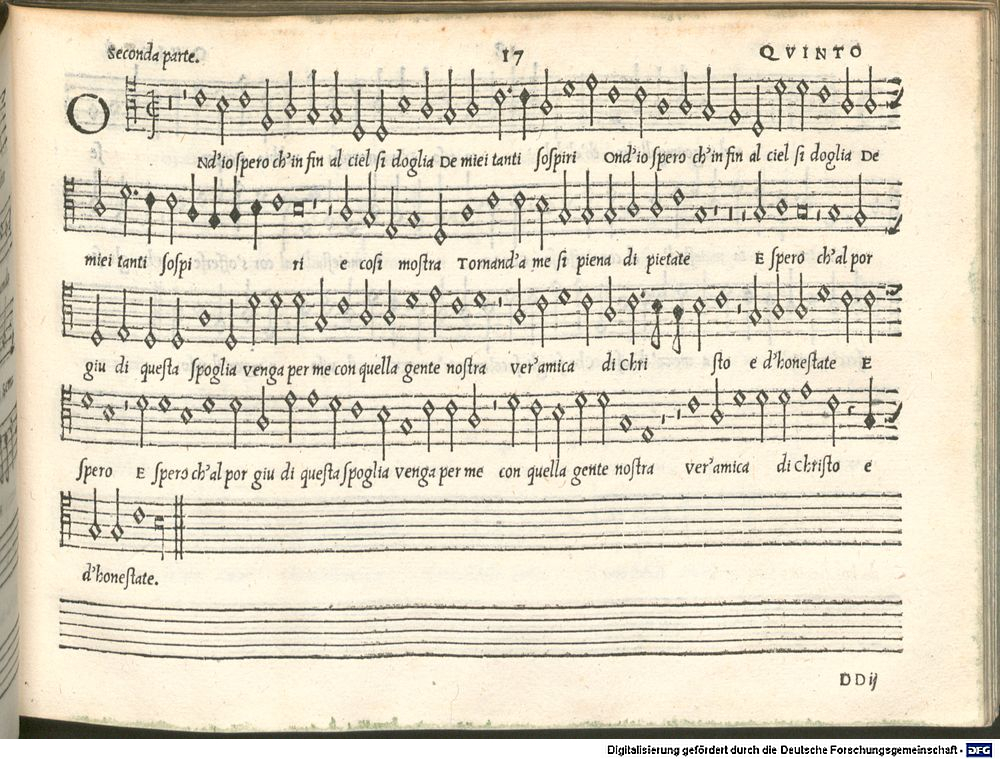 Seconda parte. 17 QVINTO
O
Nd'io spero ch'in fin al ciel si doglia De miei tanti sospiri Ond'io spero ch'in fin al ciel si doglia De
miei tanti sospi ri e cosi mostra Tornand'a me si piena di pietate E spero ch'al por
giu di questa spoglia venga per me con quella gente nostra ver'amica di chri sto e d'honestate E
spero E spero ch'al por giu di questa spoglia venga per me con quella gente nostra ver'amica di Christo e
d'honestate.
DDij
Digitalisierung gefördert durch die Deutsche Forschungsgemeinschaft - DFG